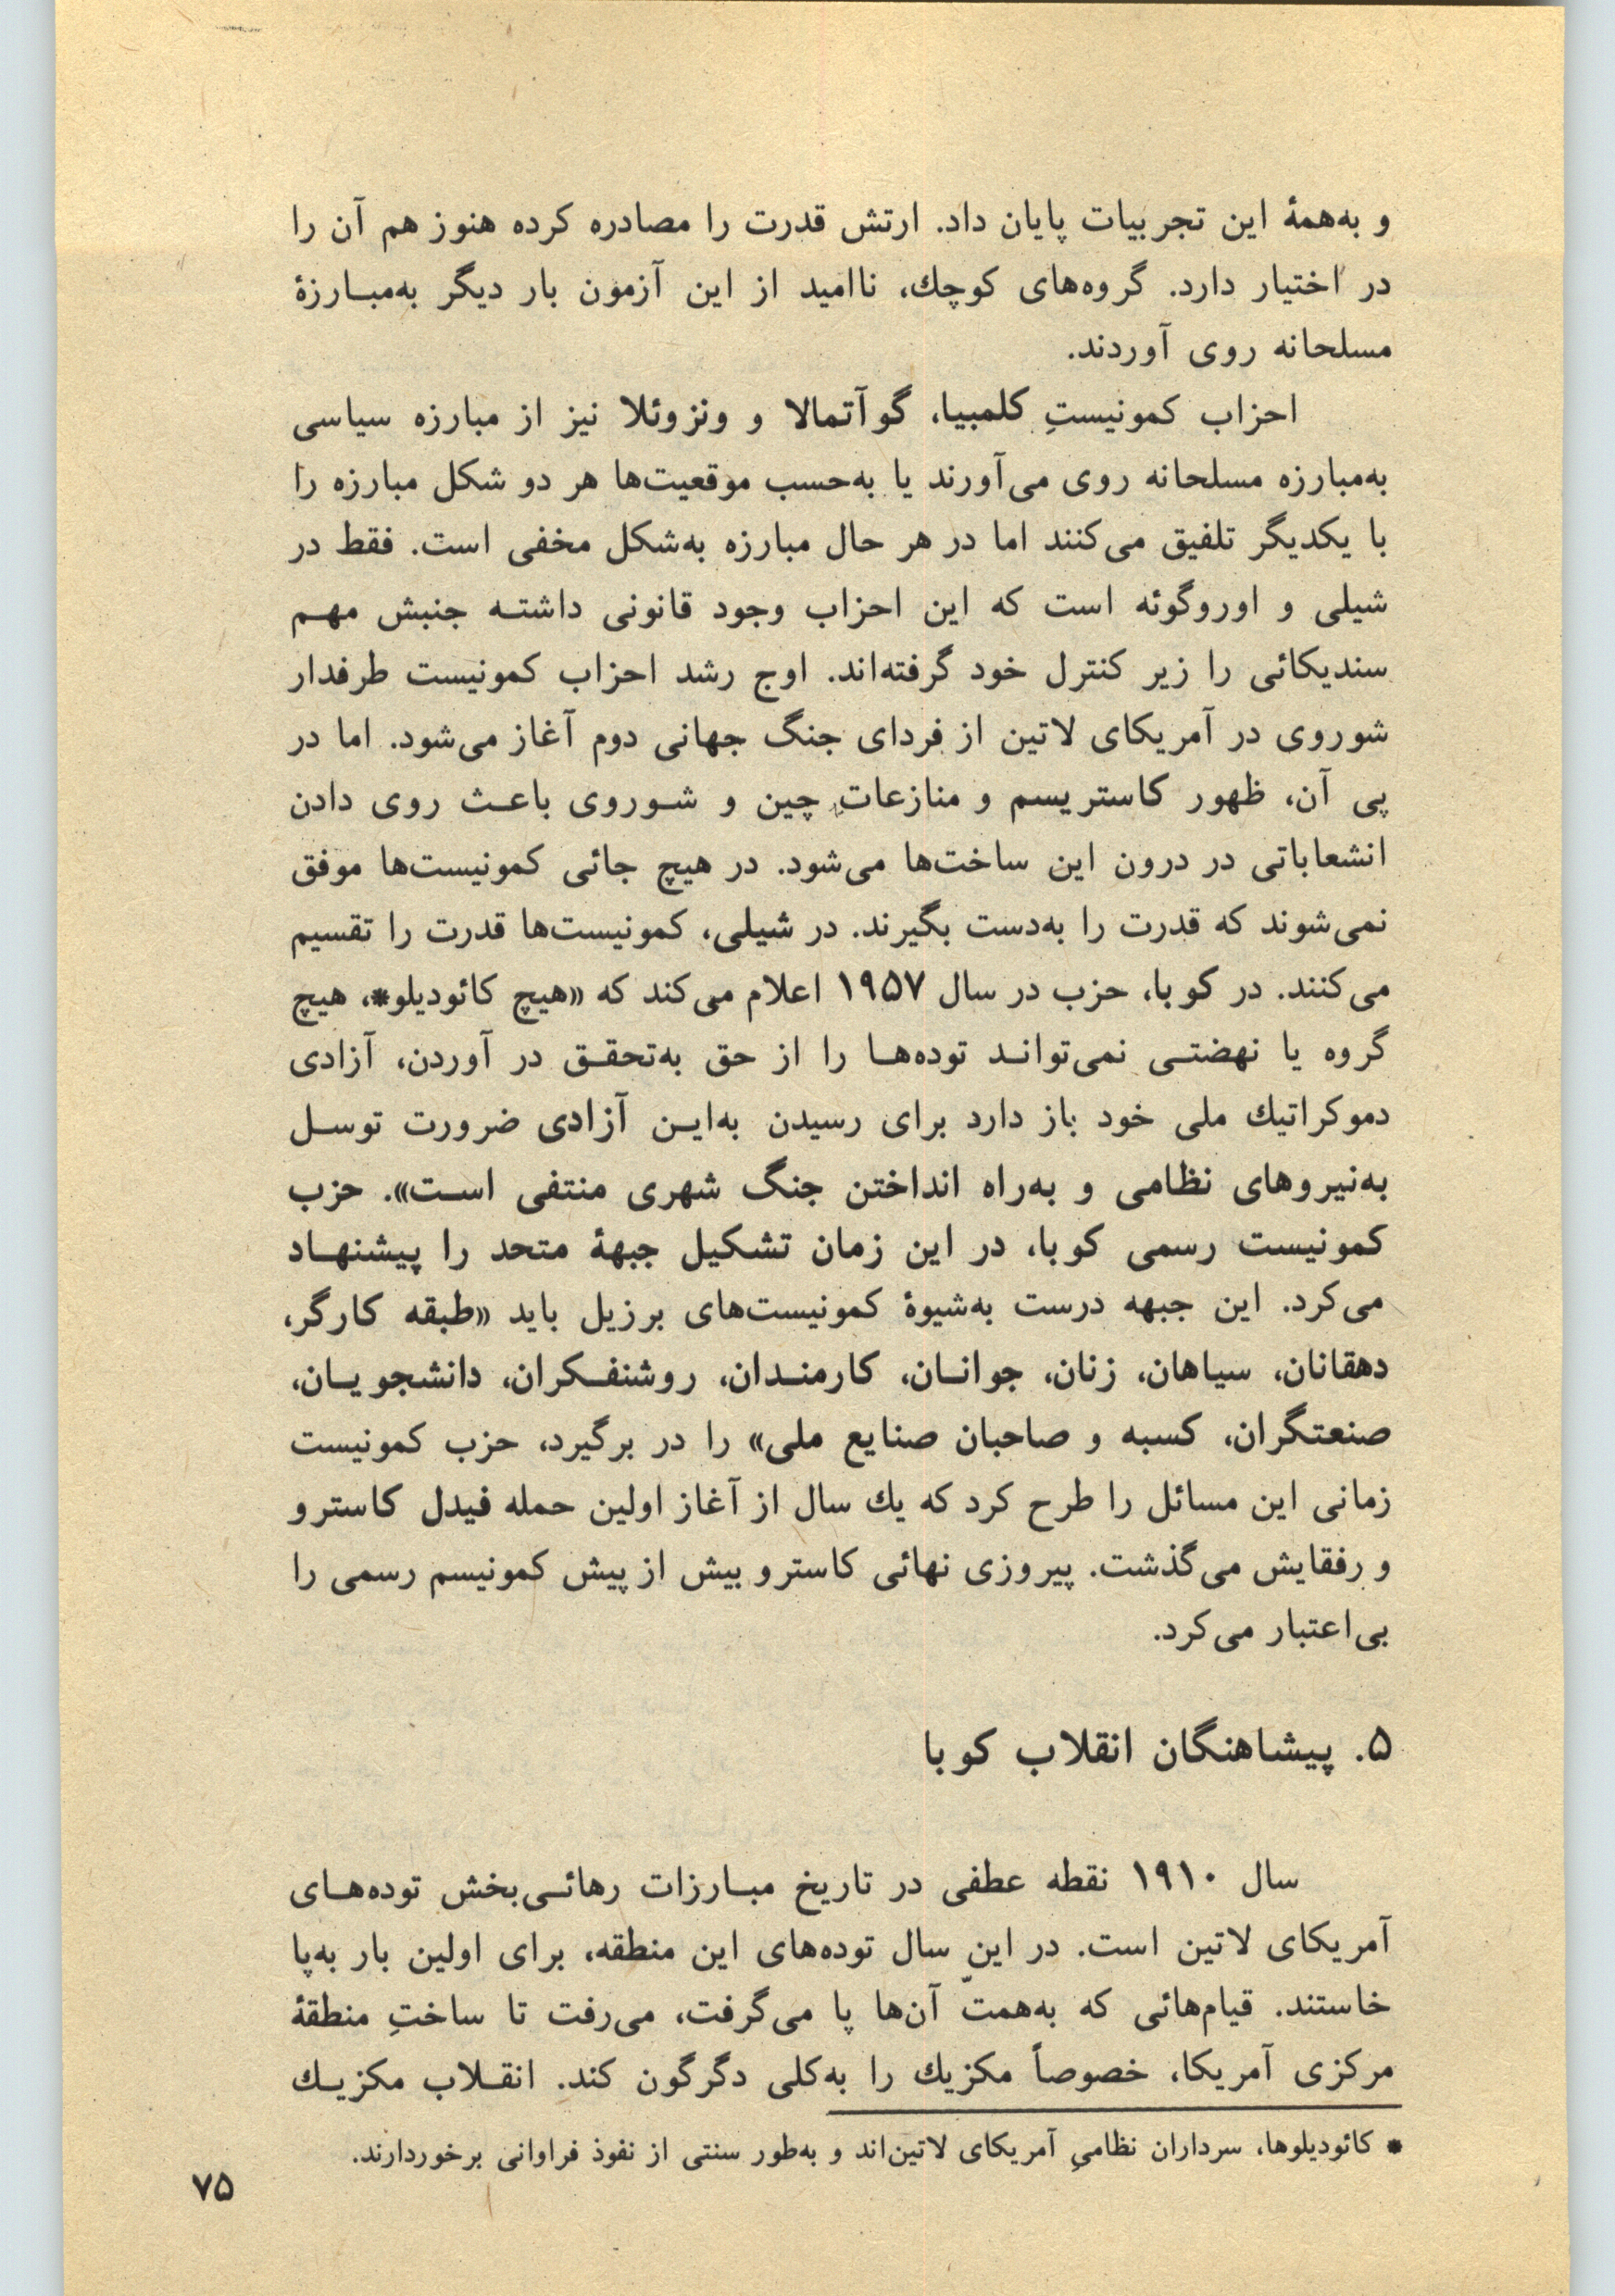 و به‌همهٔ این تجربیات پایان داد. ارتش قدرت را مصادره کرده هنوز هم آن را
در اختیار دارد. گروه‌های کوچك، ناامید از این آزمون بار دیگر به‌مبـارزهٔ
مسلحانه روی آوردند.
احزاب کمونیستِ کلمبیا، گوآتمالا و ونزوئلا نیز از مبارزه سیاسی
به‌مبارزه مسلحانه روی می‌آورند یا به‌حسب موقعیت‌ها هر دو شکل مبارزه را
با یکدیگر تلفیق می‌کنند اما در هر حال مبارزه به‌شکل مخفی است. فقط در
شیلی و اوروگوئه است که این احزاب وجود قانونی داشتـه جنبش مهـم
سندیکائی را زیر کنترل خود گرفته‌اند. اوج رشد احزاب کمونیست طرفدار
شوروی در آمریکای لاتین از فردای جنگ جهانی دوم آغاز می‌شود. اما در
پی آن، ظهور کاستریسم و منازعاتِ چین و شـوروی باعـث روی دادن
انشعاباتی در درون این ساخت‌ها می‌شود. در هیچ جائی کمونیست‌ها موفق
نمی‌شوند که قدرت را به‌دست بگیرند. در شیلی، کمونیست‌ها قدرت را تقسیم
می‌کنند. در کوبا، حزب در سال ۱۹۵۷ اعلام می‌کند که «هیچ کائودیلو*، هیچ
گروه یا نهضتـی نمی‌توانـد توده‌هـا را از حق به‌تحقـق در آوردن، آزادی
دموکراتیك ملی خود باز دارد برای رسیدن به‌ایـن آزادی ضرورت توسـل
به‌نیروهای نظامی و به‌راه انداختن جنگ شهری منتفی اسـت». حزب
کمونیست رسمی کوبا، در این زمان تشکیل جبههٔ متحد را پیشنهـاد
می‌کرد. این جبهه درست به‌شیوهٔ کمونیست‌های برزیل باید «طبقه کارگر،
دهقانان، سیاهان، زنان، جوانـان، کارمنـدان، روشنفـکران، دانشجویـان،
صنعتگران، کسبه و صاحبان صنایع ملی» را در برگیرد، حزب کمونیست
زمانی این مسائل را طرح کرد که یك سال از آغاز اولین حمله فیدل کاسترو
و رفقایش می‌گذشت. پیروزی نهائی کاسترو بیش از پیش کمونیسم رسمی را
بی‌اعتبار می‌کرد.
۵. پیشاهنگان انقلاب کوبا
سال ۱۹۱۰ نقطه عطفی در تاریخ مبـارزات رهائـی‌بخش توده‌هـای
آمریکای لاتین است. در این سال توده‌های این منطقه، برای اولین بار به‌پا
خاستند. قیام‌هائی که به‌همتّ آن‌ها پا می‌گرفت، می‌رفت تا ساختِ منطقهٔ
مرکزی آمریکا، خصوصاً مکزیك را به‌کلی دگرگون کند. انقـلاب مکزیـك
* کائودیلوها، سرداران نظامیِ آمریکای لاتین‌اند و به‌طور سنتی از نفوذ فراوانی برخوردارند.
۷۵